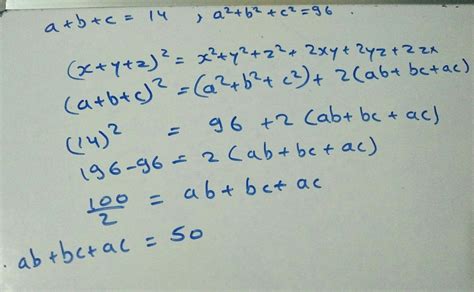 a+b+c = 14 , a²+b²+c²=96 .
(x+y+z)² = x²+y²+z²+2xy+2yz+2zx
(a+b+c)² =(a²+b²+c²)+ 2(ab+bc+ac)
(14)² = 96 +2(ab+bc+ac)
196-96 = 2(ab+bc+ac)
100/2 = ab+bc+ac
. ab+bc+ac = 50